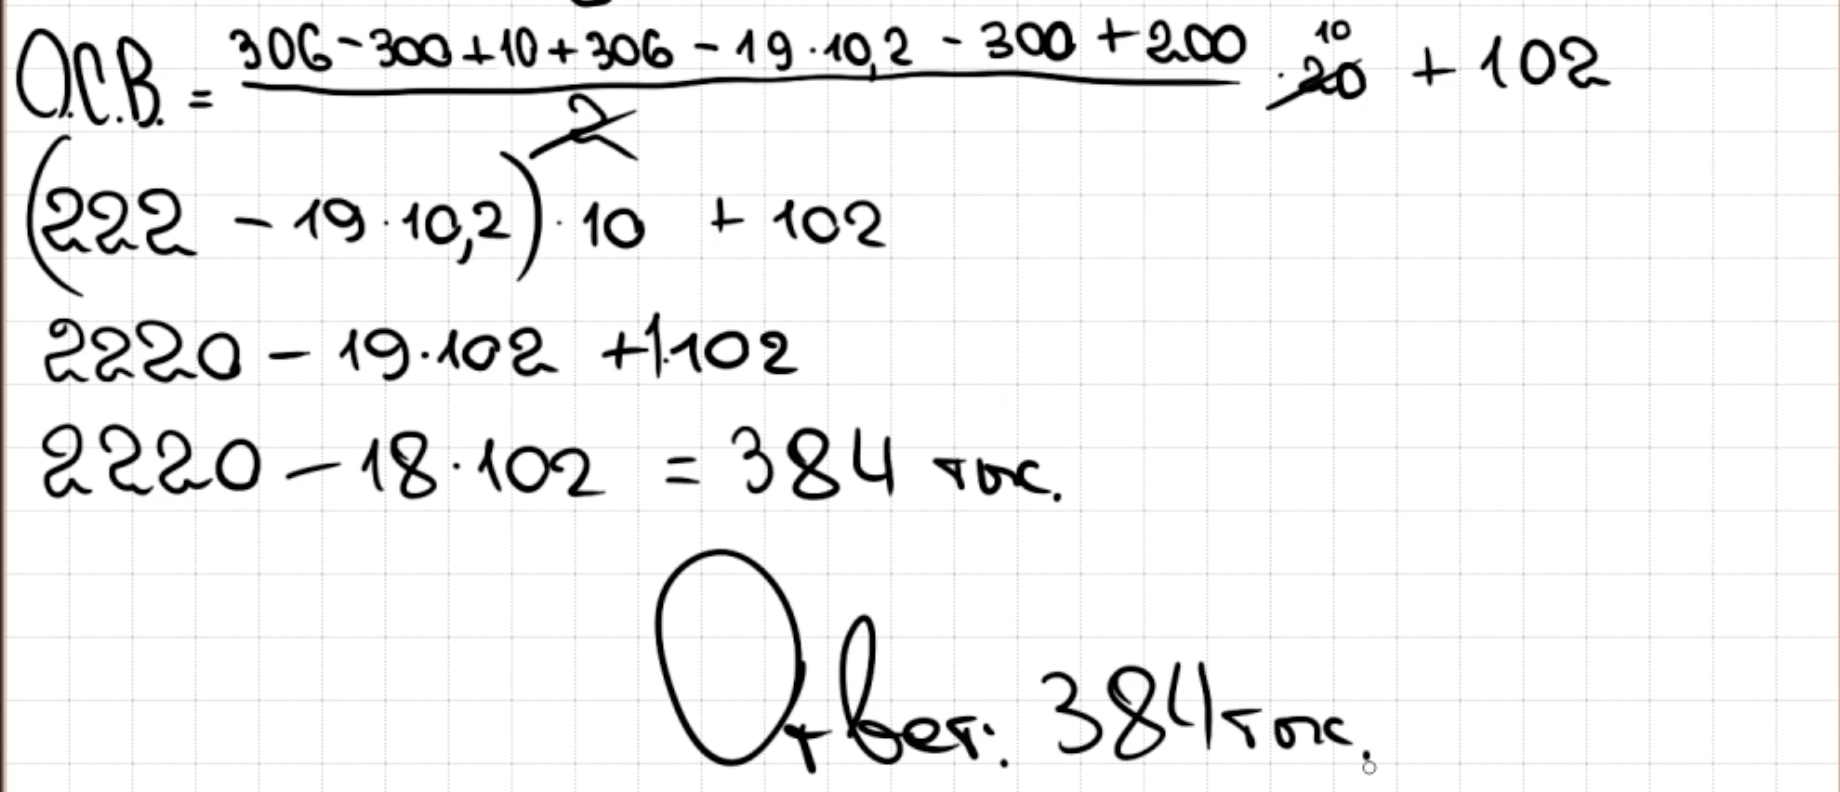 О.С.В. = (306 - 300 + 10 + 306 - 19 · 10,2 - 300 + 200) / 2 · 20 10 + 102
(222 - 19 · 10,2) · 10 + 102
2220 - 19 · 102 + 1·102
2220 - 18 · 102 = 384 тыс.
Ответ: 384 тыс.